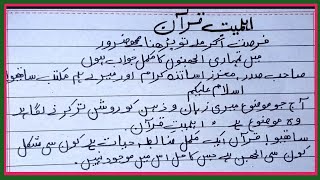 اہمیت قرآن
فرصت اگر ملے تو پڑھنا مجھ ضرور
میں تمہاری الجھنوں کا مکمل جواب ہوں
صاحب صدر معزز اساتذہ کرام اور میرے ہم مکتب ساتھیو!
اسلام علیکم
آج جو موضوع میری زبان و ذہن کو روشن تر کرنے لگا ہے
وہ موضوع ہے " اہمیت قرآن
ساتھیو! قرآن ایک مکمل ضابطہ حیات ہے کون سی شکل
کون سی الجھن ہے جس کا حل اس میں موجود نہیں۔